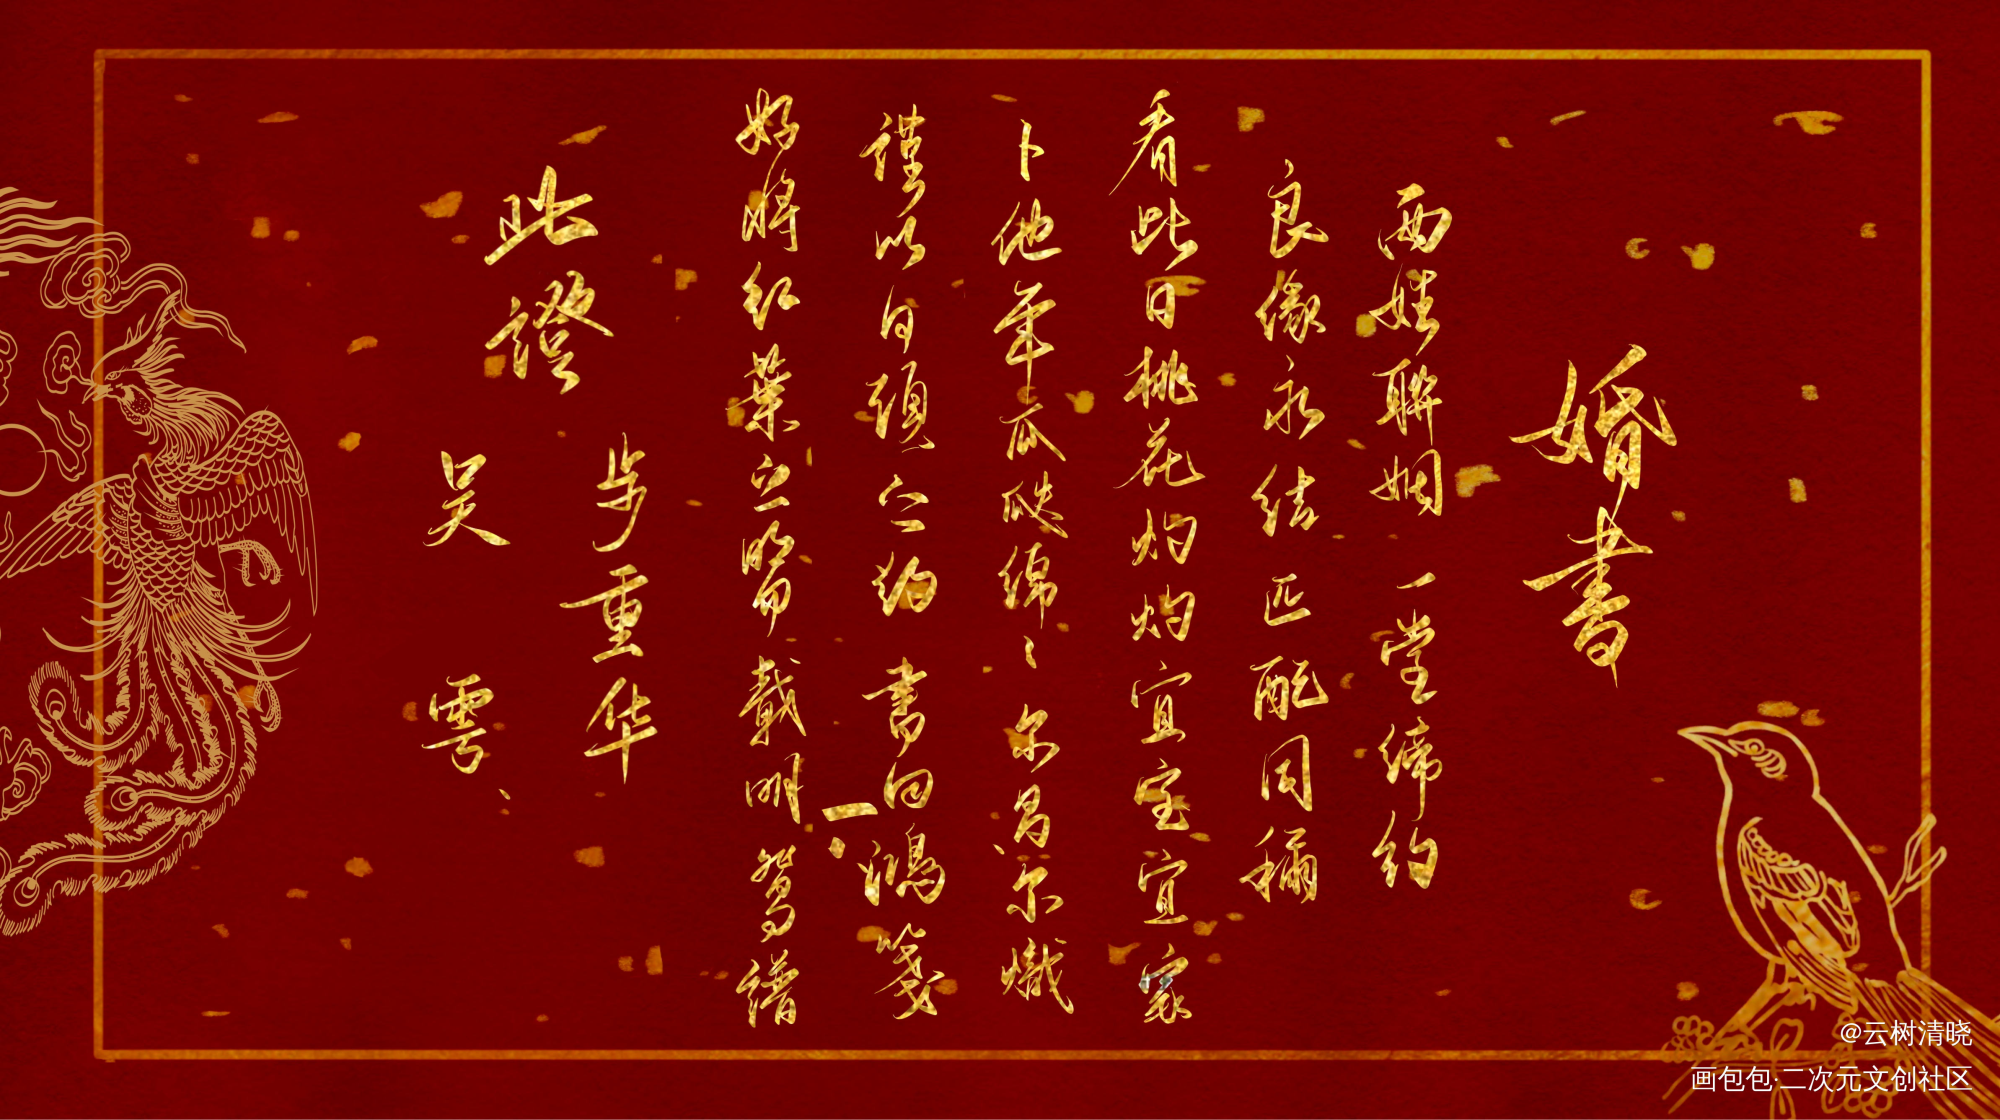 婚書
两姓聯姻 一堂缔约
良缘永结 匹配同称
看此日桃花灼灼 宜室宜家
卜他年瓜瓞绵〻 尔昌尔熾
谨以白頭之约 书向鴻箋
好將红葉之盟 載明鸳谱
此證
步重华
吴雩
@云树清晓
画包包·二次元文创社区